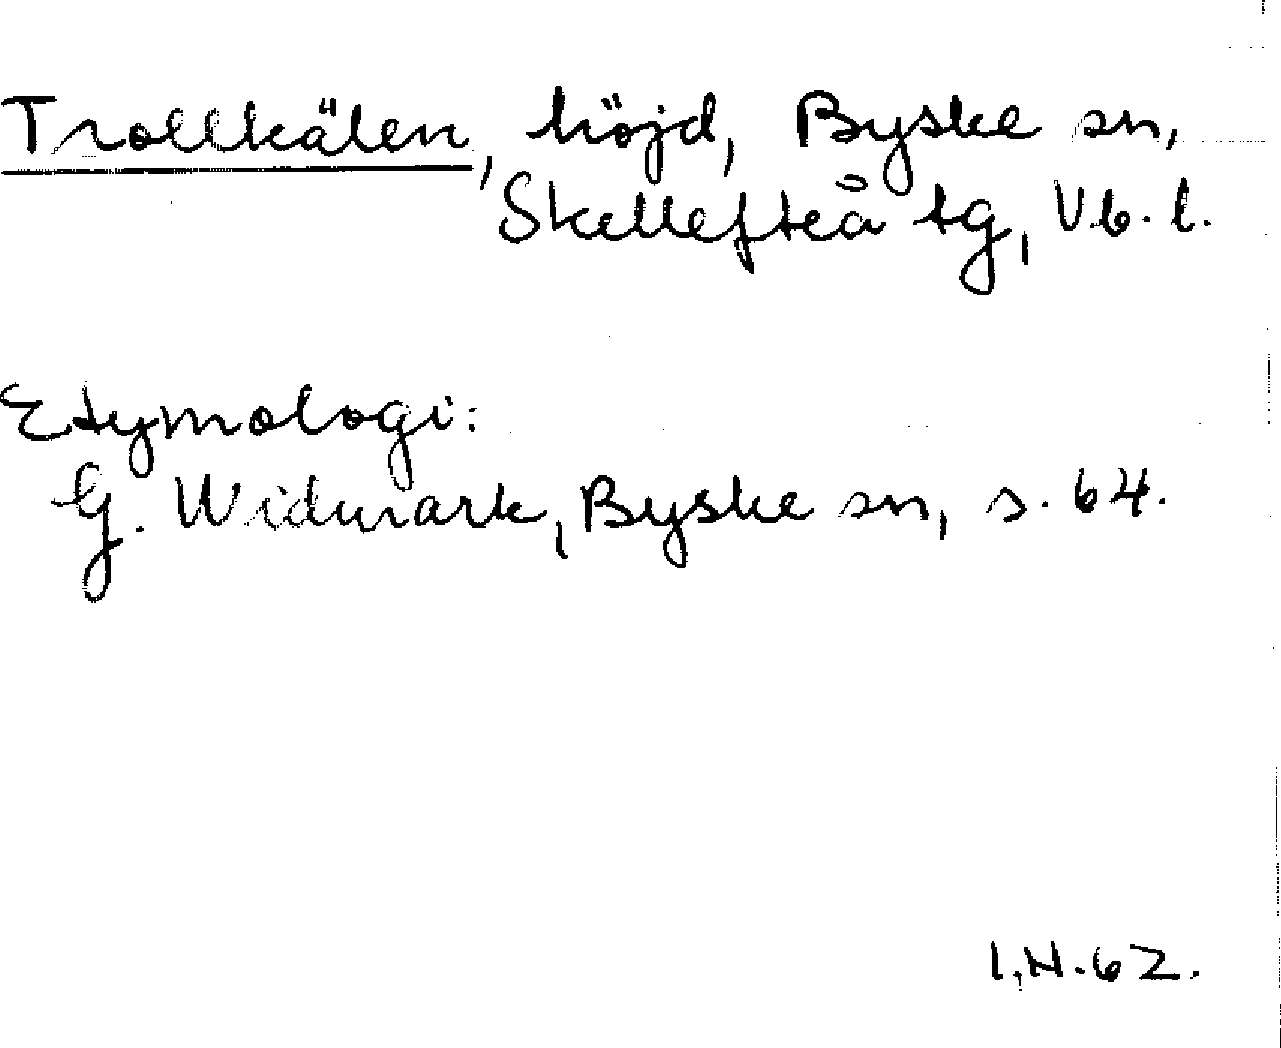 Trollkälen, höjd, Byske sn,
Skellefteå tg, Vb. l.
Etymologi:
G. Widmark, Byske sn, s. 64.
I.N.62.